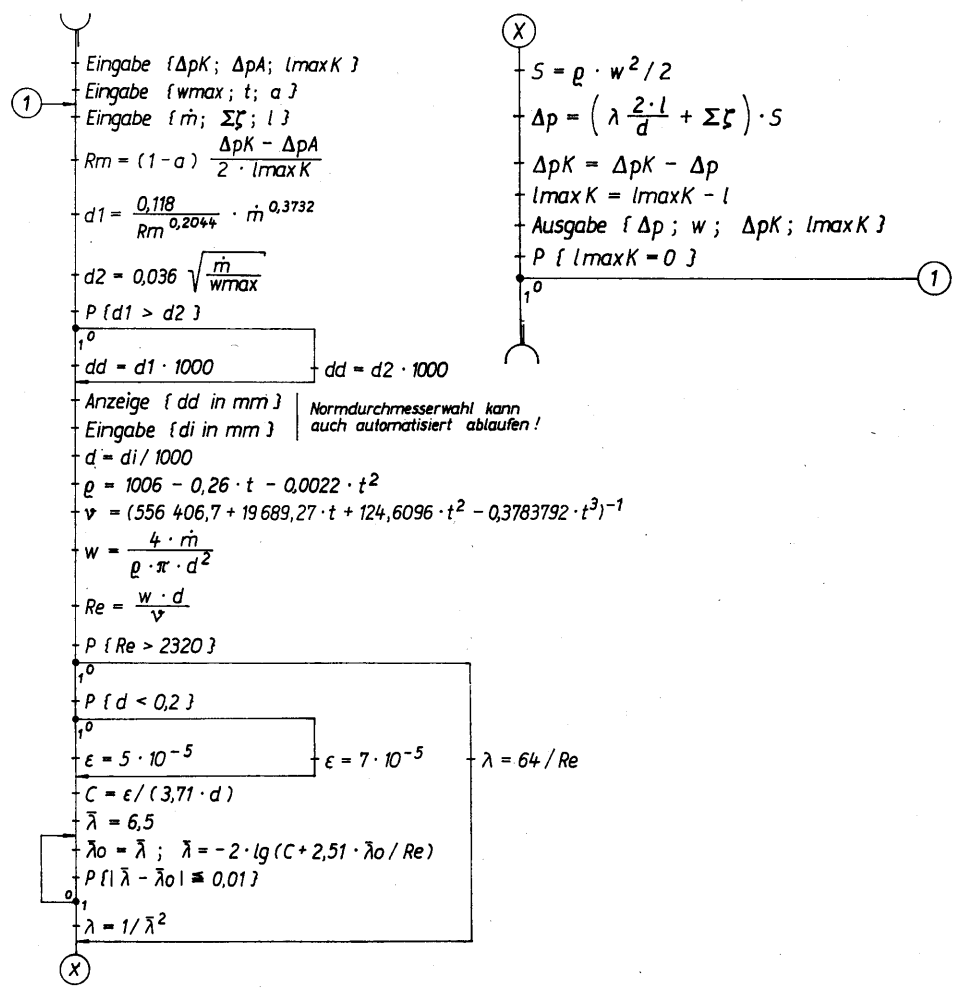 Eingabe {ΔpK; ΔpA; lmaxK}
Eingabe {wmax; t; a}
1
Eingabe {ṁ; Σζ; l}
Rm = (1-a) (ΔpK - ΔpA) / (2 · lmaxK)
d1 = 0,118 / Rm^0,2044 · ṁ^0,3732
d2 = 0,036 √(ṁ / wmax)
P {d1 > d2}
1 0
dd = d1 · 1000
dd = d2 · 1000
Anzeige {dd in mm}
Eingabe {di in mm}
Normdurchmesserwahl kann
auch automatisiert ablaufen!
d = di / 1000
ϱ = 1006 - 0,26 · t - 0,0022 · t²
ν = (556 406,7 + 19 689,27 · t + 124,6096 · t² - 0,3783792 · t³)⁻¹
w = 4 · ṁ / (ϱ · π · d²)
Re = w · d / ν
P {Re > 2320}
1 0
P {d < 0,2}
1 0
ε = 5 · 10⁻⁵
ε = 7 · 10⁻⁵
λ = 64 / Re
C = ε / (3,71 · d)
λ̄ = 6,5
λ̄o = λ̄ ; λ̄ = -2 · lg (C + 2,51 · λ̄o / Re)
P {| λ̄ - λ̄o | ≦ 0,01}
0 1
λ = 1 / λ̄²
X
X
S = ϱ · w² / 2
Δp = (λ 2·l / d + Σζ) · S
ΔpK = ΔpK - Δp
lmaxK = lmaxK - l
Ausgabe {Δp ; w ; ΔpK ; lmaxK}
P {lmaxK = 0}
1 0
1